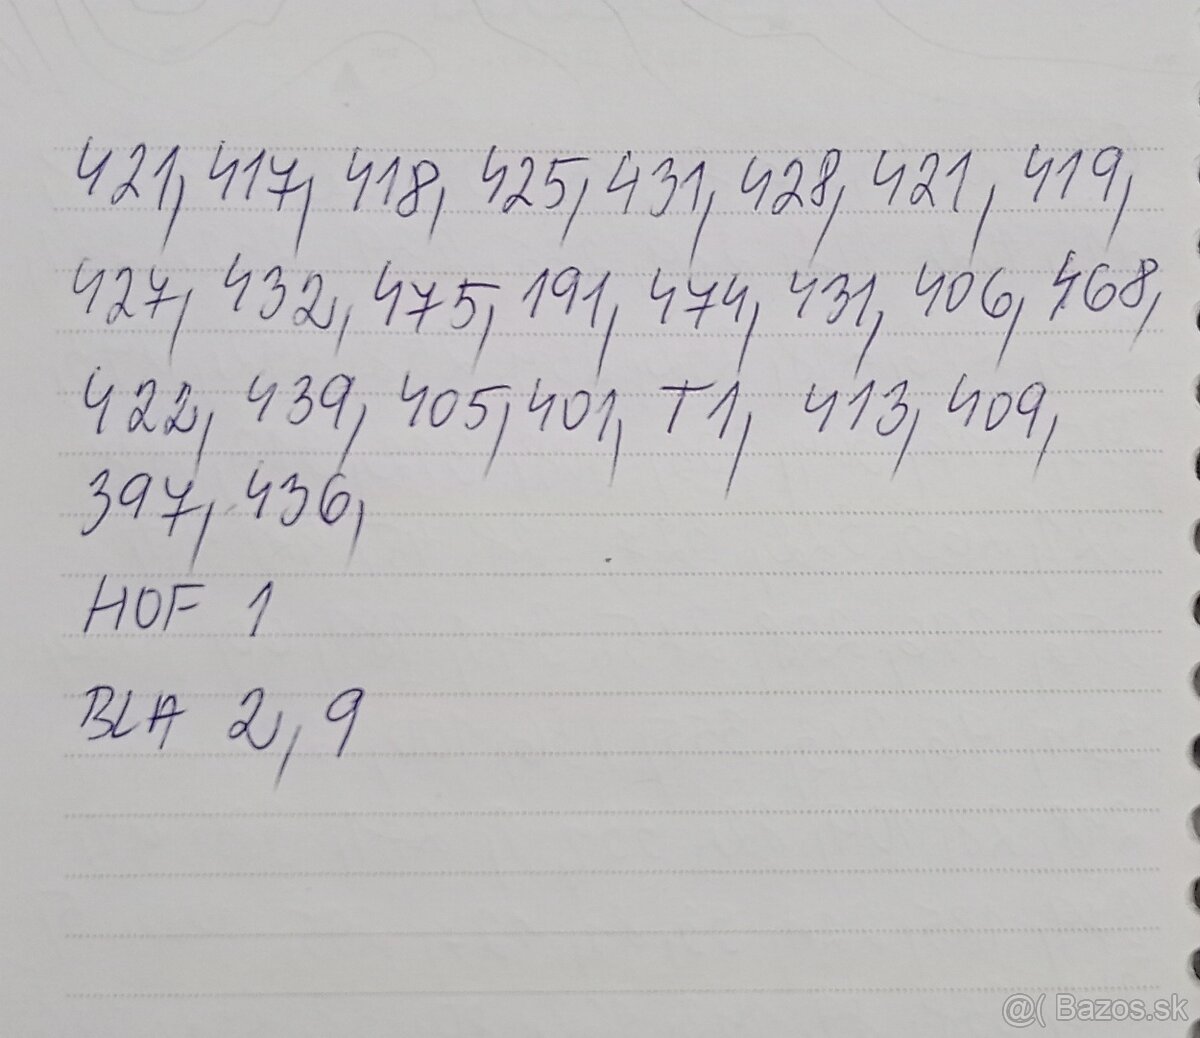 421, 417, 418, 425, 431, 428, 421, 419,
427, 432, 475, 191, 474, 431, 406, 468,
422, 439, 405, 401, T1, 413, 409,
397, 436,
HOF 1
BLA 2, 9
@( Bazos.sk